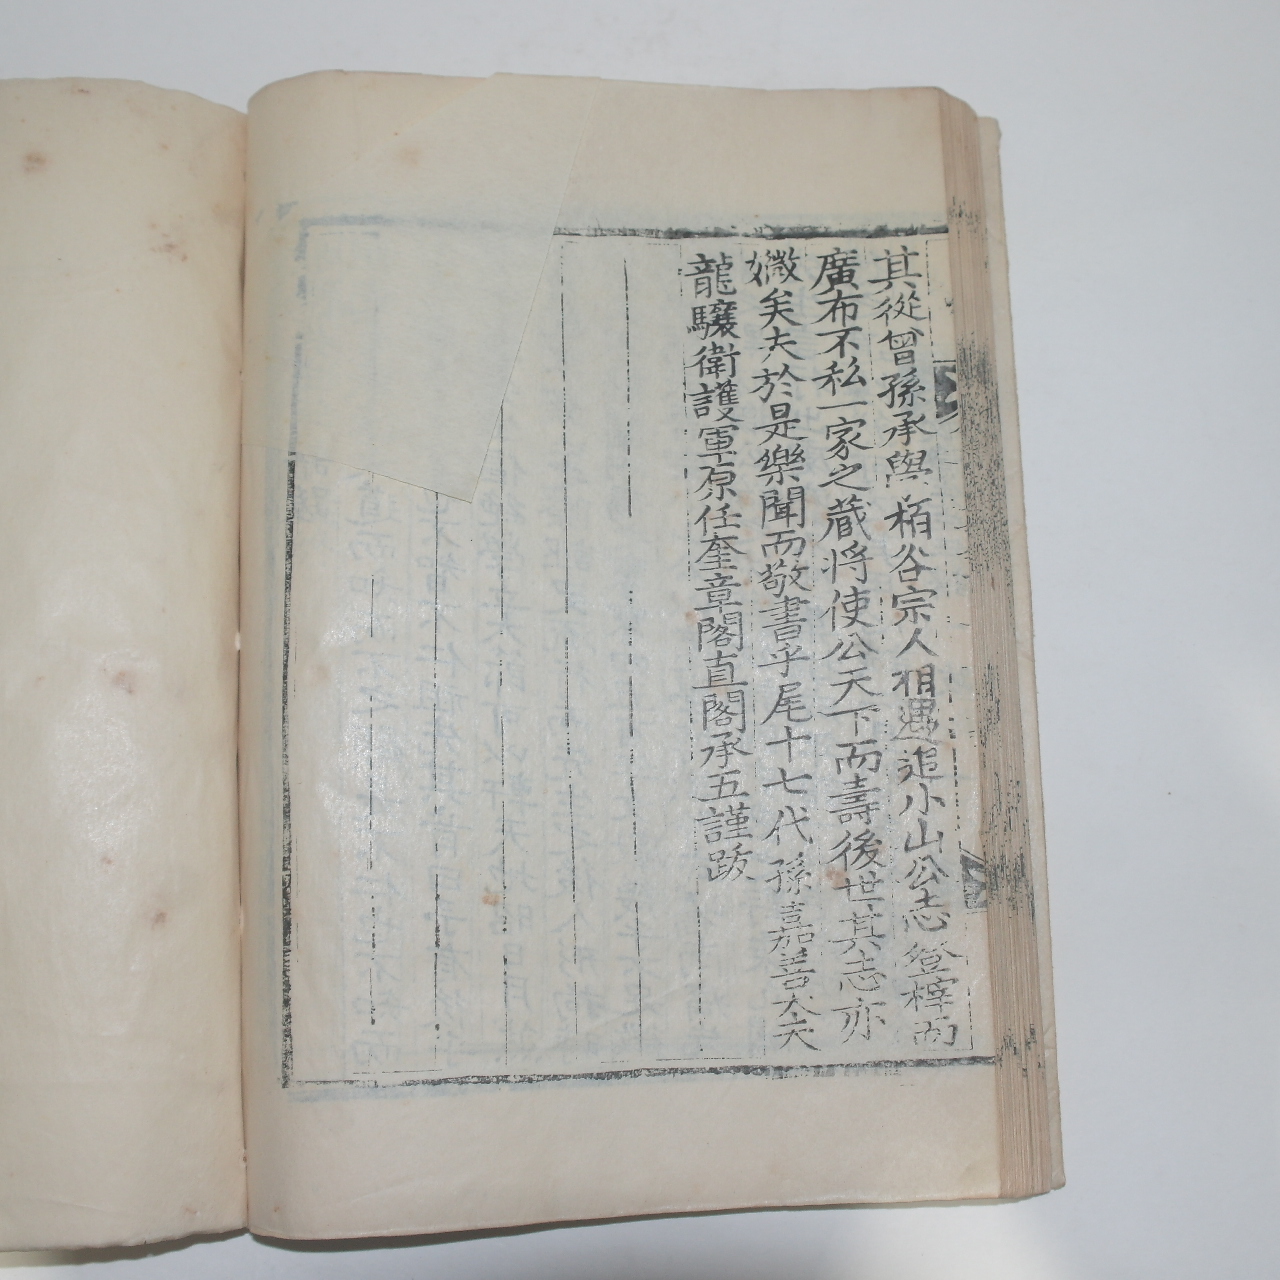 其從曾孫承與栢谷宗人相遇追小山公志登梓而
廣布不私一家之藏將使公天下而壽後世其志亦
媺矣夫於是樂聞而敬書乎尾十七代孫嘉善大夫
龍驤衛護軍原任奎章閣直閣承五謹跋